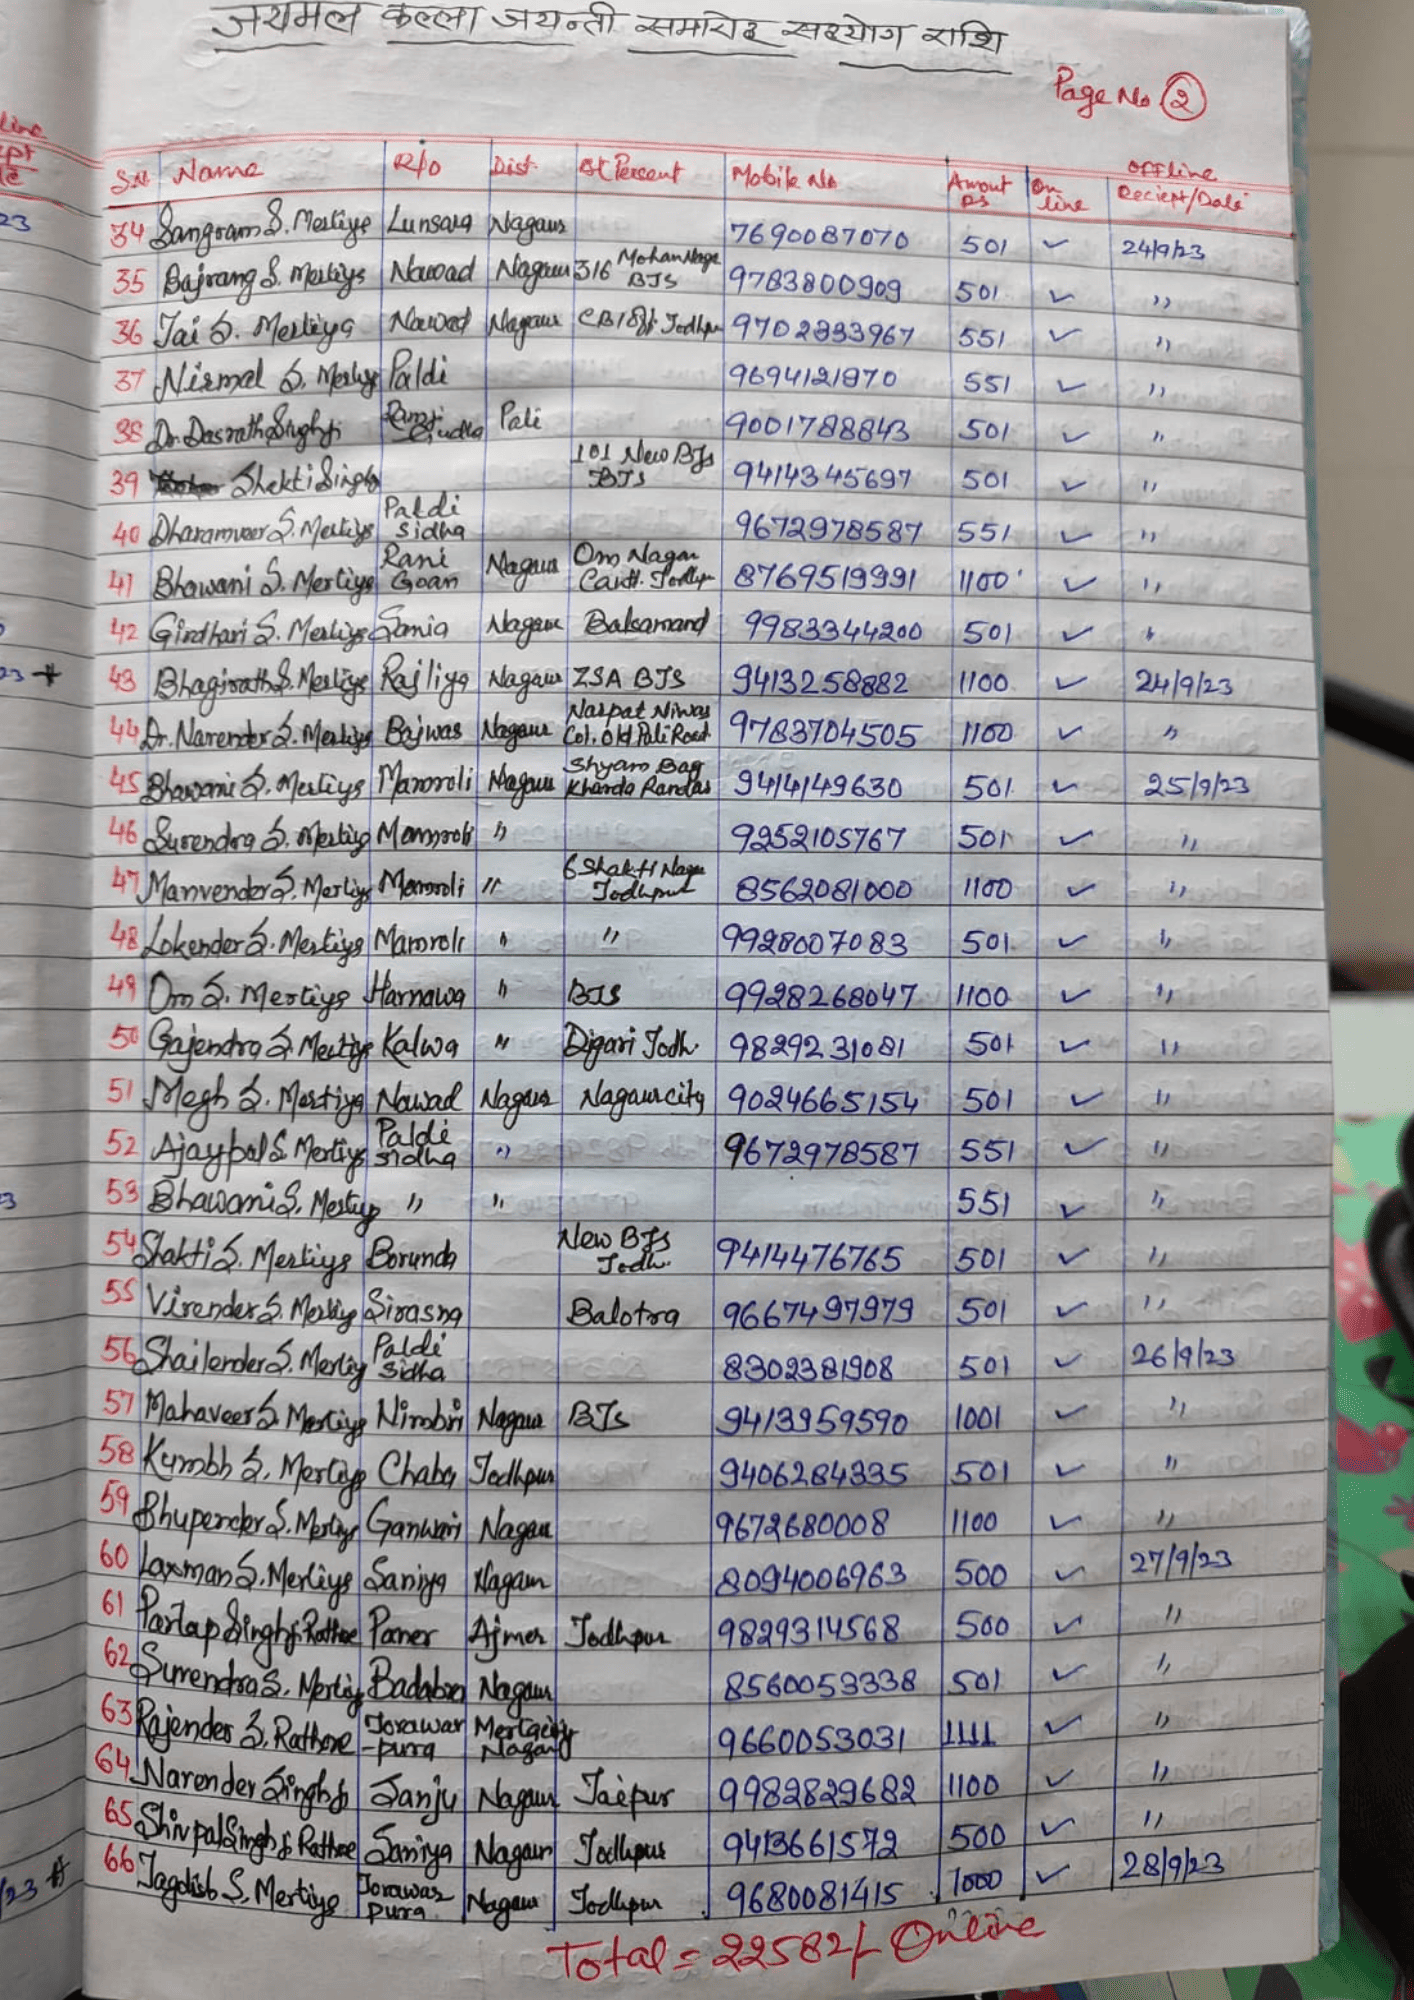 जयमल कल्ला जयन्ती समारोह सहयोग राशि
Page No 2
S.N. Name R/o Dist. At Percent Mobile No Amout Rs On line offline Reciept/Date
34 Sangram S. Mertiye Lunsara Nagaur 7690087070 501 ✓ 24/9/23
35 Bajrang S. Mertiys Nawad Nagaur 316 Mohan Nagar BJS 9783800909 501 ✓ "
36 Jai S. Mertiya Nawad Nagaur Jodhpur 9702333967 551 ✓ "
37 Nirmal S. Mertiys Paldi 9694121970 551 ✓ "
38 Dr. Dasrath Singhji Ramji Gudha Pali 9001788843 501 ✓ "
39 Shakti Singh 101 New BJS BJS 9414345697 501 ✓ "
40 Dharamveer S. Mertiys Paldi Sidha 9672978587 551 ✓ "
41 Bhawani S. Mertiys Rani Goan Nagaur Om Nagar Cantt. Jodhpur 8769519991 1100 ✓ "
42 Girdhari S. Mertiys Sania Nagaur Balsamand 9983344200 501 ✓ "
43 Bhagirath S. Mertiys Rajliya Nagaur ZSA BJS 9413258882 1100 ✓ 24/9/23
44 Dr. Narender S. Mertiys Bajwas Nagaur Narpat Niwas Col. Old Pali Road 9783704505 1100 ✓ "
45 Bhawani S. Mertiys Mamroli Nagaur Shyam Bag Kharda Randas 9414149630 501 ✓ 25/9/23
46 Surendra S. Mertiy Mamroli " 9252105767 501 ✓ "
47 Manvender S. Mertiy Mamroli " 6 Shakti Nagar Jodhpur 8562081000 1100 ✓ "
48 Lokender S. Mertiys Mamroli " " 9928007083 501 ✓ "
49 Om S. Mertiys Harnawa " BJS 9928268047 1100 ✓ "
50 Gajendra S. Mertiys Kalwa " Digari Jodh. 9829231081 501 ✓ "
51 Megh S. Mertiya Nawad Nagaur Nagaur city 9024665154 501 ✓ "
52 Ajaypal S Mertiys Paldi Sidha " 9672978587 551 ✓ "
53 Bhawani S. Mertiys " " 551 ✓ "
54 Shakti S. Mertiys Borunda New BJS Jodh. 9414476765 501 ✓ "
55 Virender S. Mertiy Sirasna Balotra 9667497979 501 ✓ "
56 Shailender S. Mertiy Paldi Sidha 8302381908 501 ✓ 26/9/23
57 Mahaveer S. Mertiys Nimbri Nagaur BJS 9413959590 1001 ✓ "
58 Kumbh S. Mertiys Chaba Jodhpur 9406284335 501 ✓ "
59 Bhupender S. Mertiys Ganwari Nagaur 9672680008 1100 ✓ "
60 Laxman S. Mertiys Saniya Nagaur 8094006963 500 ✓ 27/9/23
61 Partap Singhji Rathore Paner Ajmer Jodhpur 9829314568 500 ✓ "
62 Surendra S. Mertiy Nagaur 8560053338 501 ✓ "
63 Rajender S. Rathore Jorawar-pura Merta city Nagaur 9660053031 1111 ✓ "
64 Narender Singhji Janju Nagaur Jaipur 9982829682 1100 ✓ "
65 Shivpal Singhji Rathore Saniya Nagaur Jodhpur 9413661572 500 ✓ "
66 Jagdish S. Mertiys Jorawar pura Nagaur Jodhpur 9680081415 1000 ✓ 28/9/23
Total = 22582/- Online